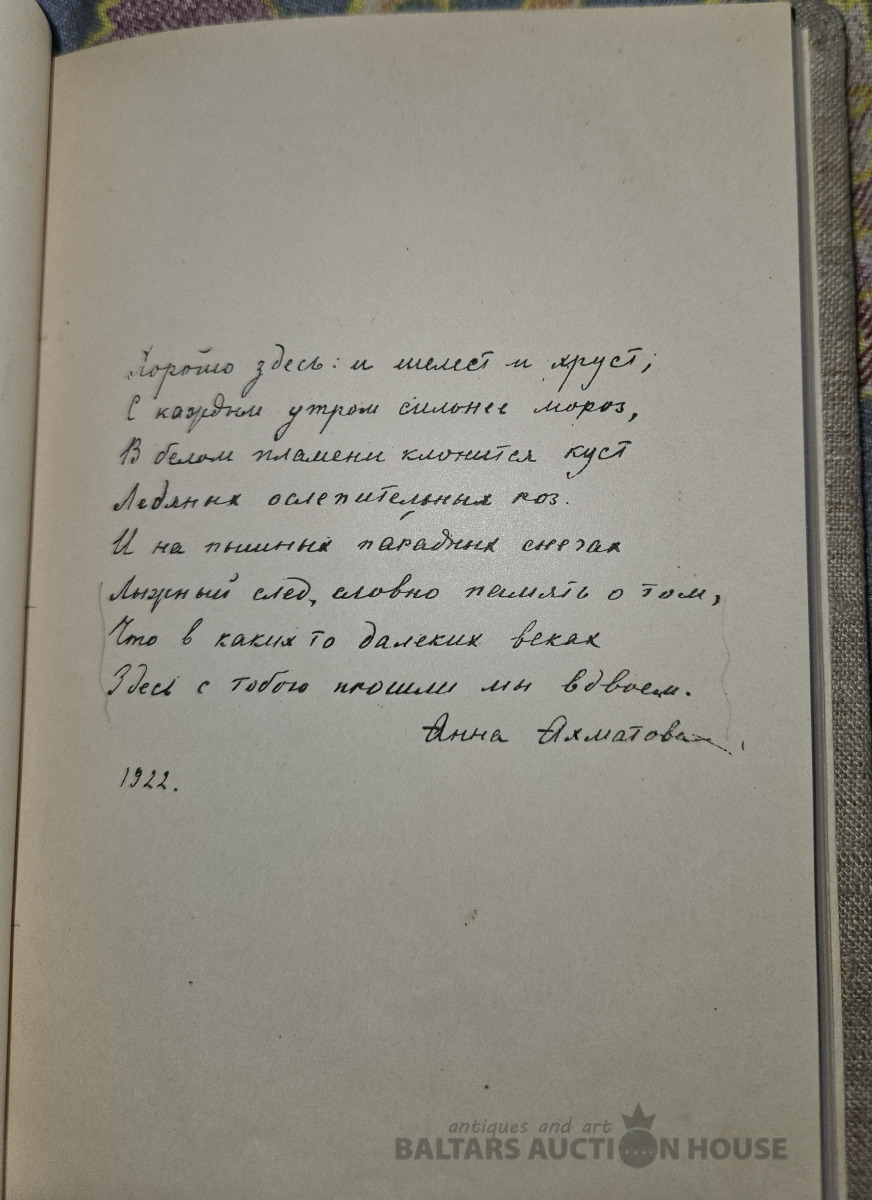 Хорошо здесь: и шелест и хруст;
С каждым утром сильнее мороз,
В белом пламени клонится куст
Ледяных ослепительных роз.
И на пышных парадных снегах
Лыжный след, словно память о том,
Что в каких то далеких веках
Здесь с тобою прошли мы вдвоем.
Анна Ахматова.
1922.
antiques and art
BALTARS AUCTION HOUSE